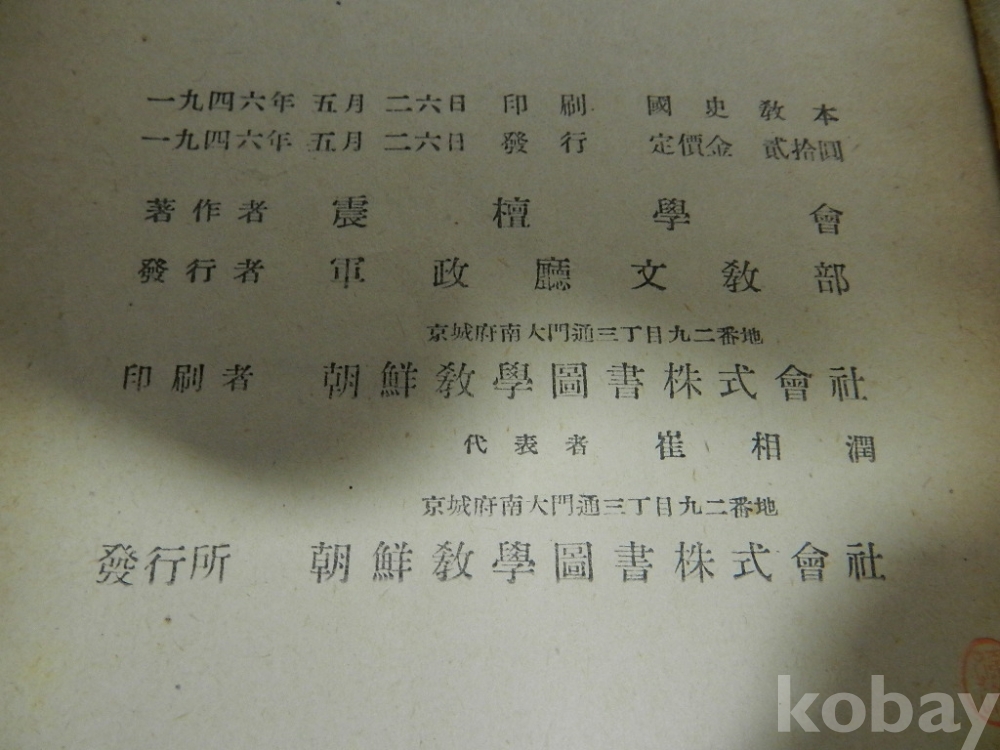 一九四六年 五月 二六日 印刷 國史敎本
一九四六年 五月 二六日 發行 定價金 貳拾圓
著作者 震檀學會
發行者 軍政廳文敎部
京城府南大門通三丁目九二番地
印刷者 朝鮮敎學圖書株式會社
代表者 崔相潤
京城府南大門通三丁目九二番地
發行所 朝鮮敎學圖書株式會社
kobay